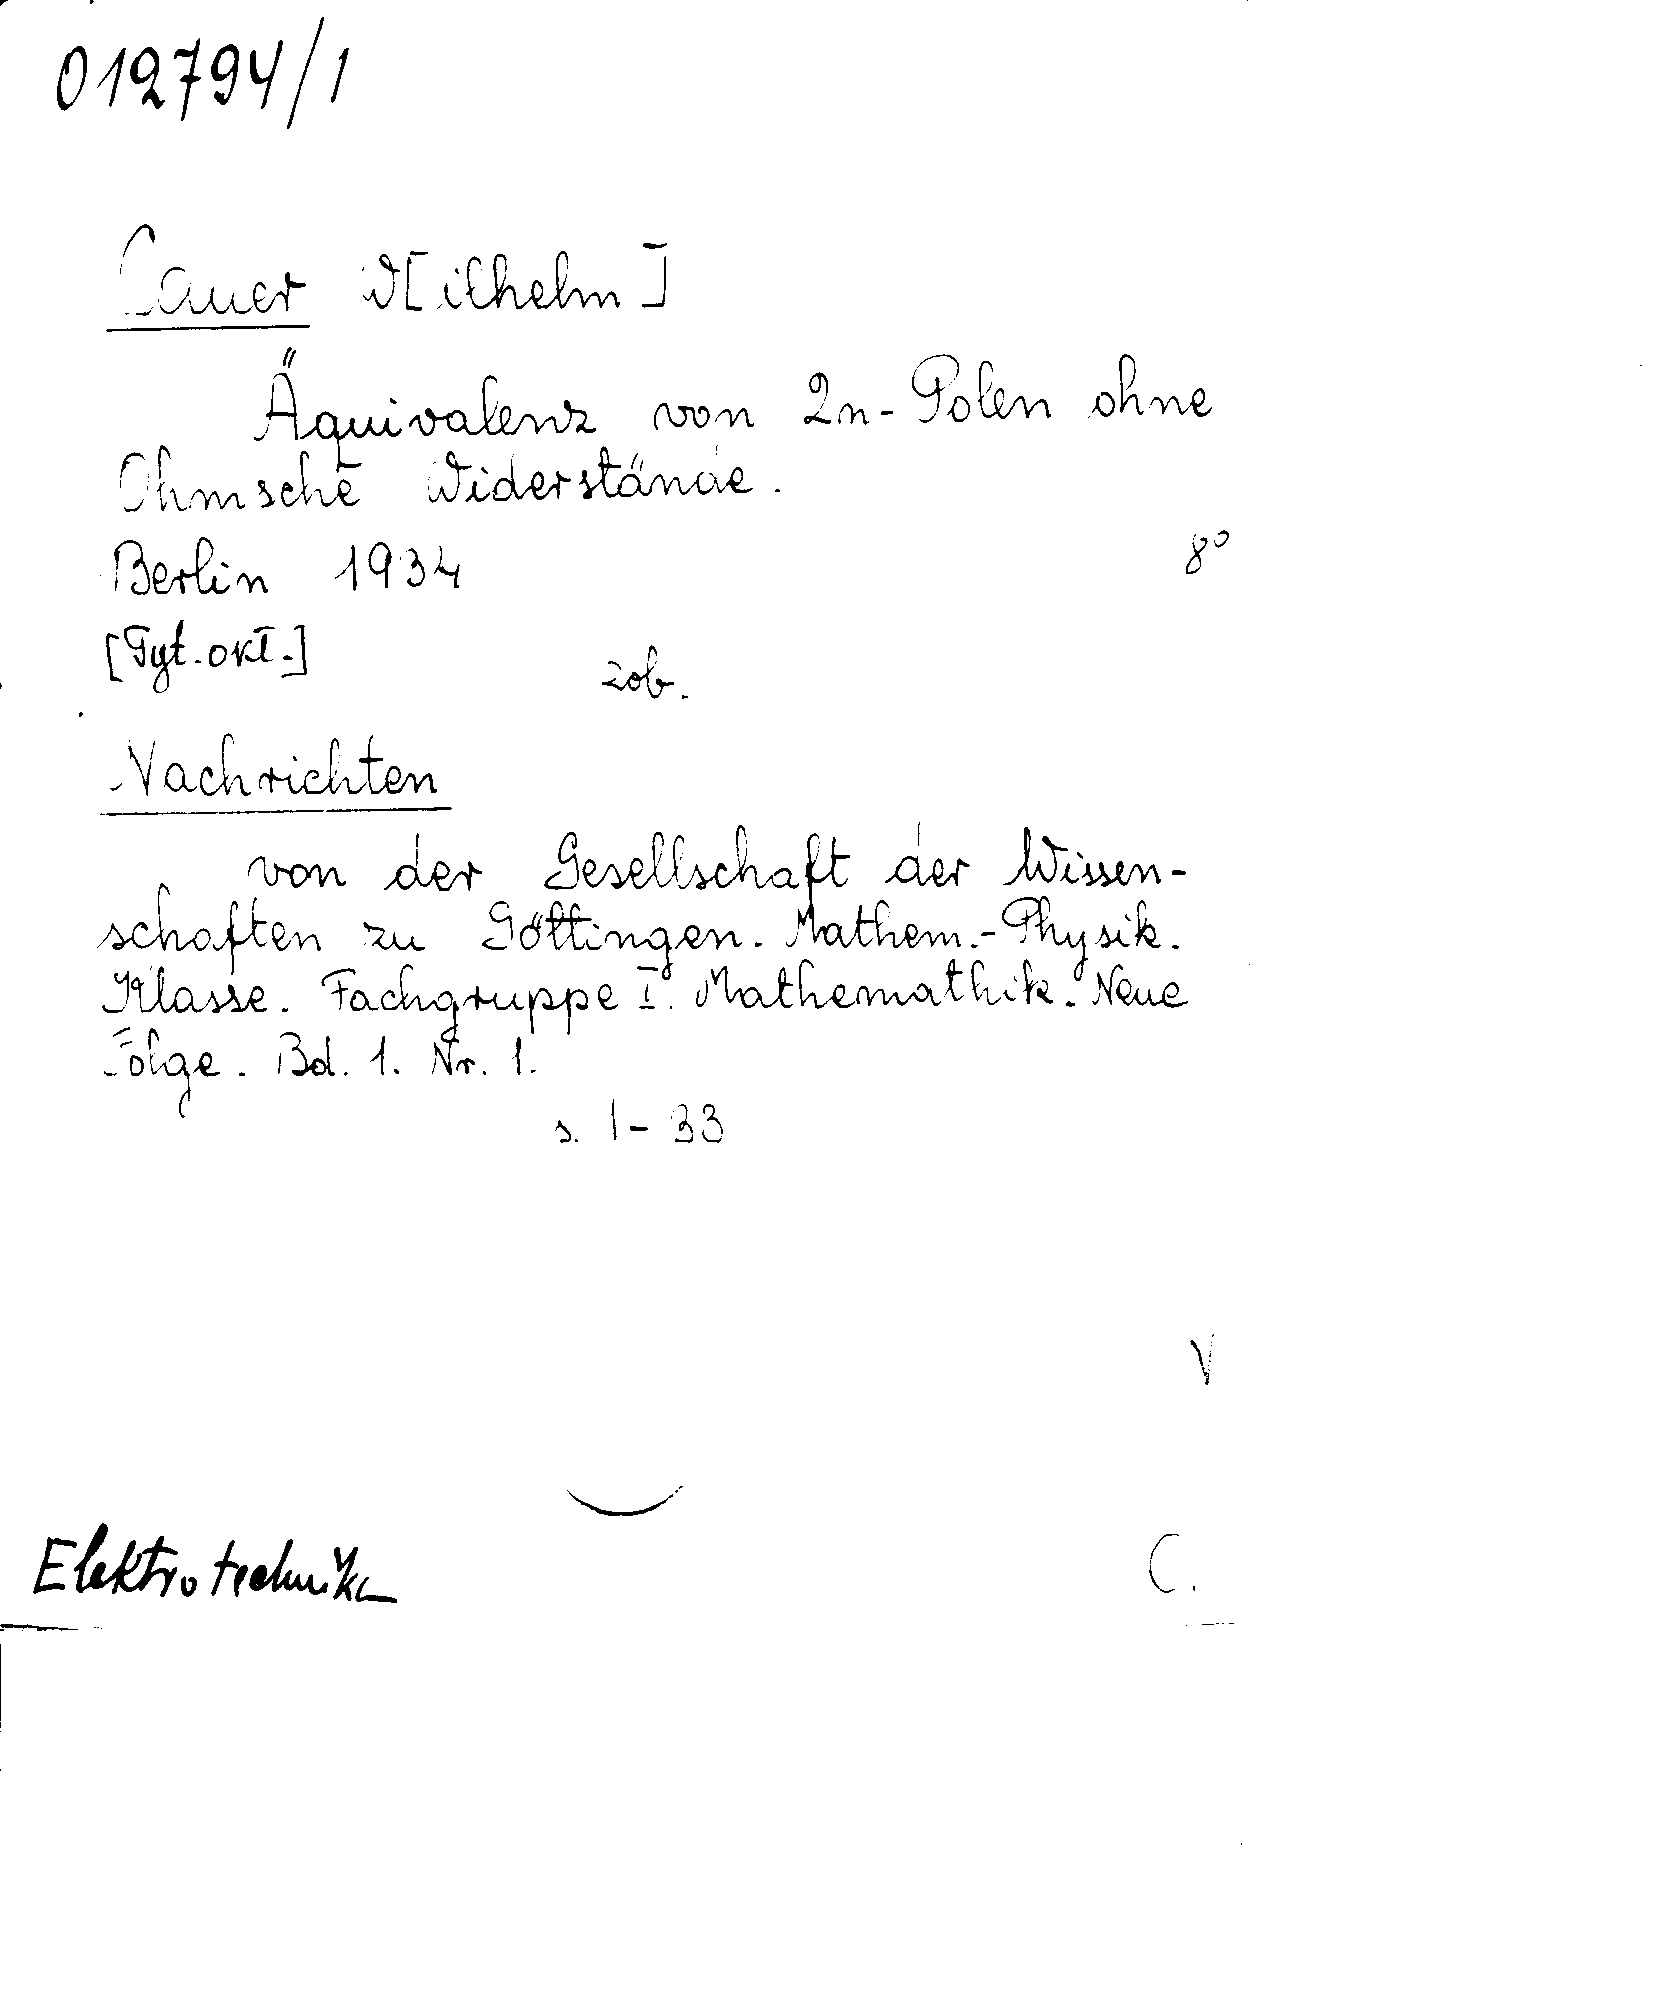 012794/1
Cauer W[ilhelm]
Äquivalenz von 2n-Polen ohne
Ohmsche Widerstände.
Berlin 1934 8°
[Tyt. okł.]
zob.
Nachrichten
von der Gesellschaft der Wissen-
schaften zu Göttingen. Mathem.-Physik.
Klasse. Fachgruppe I. Mathemathik. Neue
Folge. Bd. 1. Nr. 1.
s. 1-33
V
Elektrotechnika C.